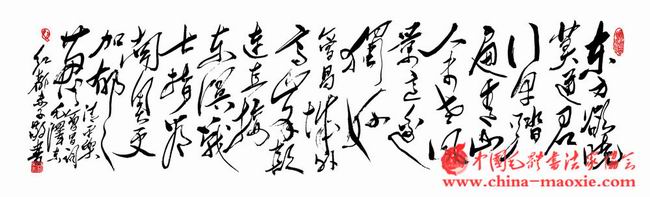 东方欲晓
莫道君
行早踏
遍青山
人未老风
景这边
独好
会昌城外
高峰颠
连直接
东溟战
士指看
南粤更
加郁郁
葱葱
清平乐
会昌词
毛泽东
红都李敬书
中国毛体书法家协会
www.china-maoxie.com